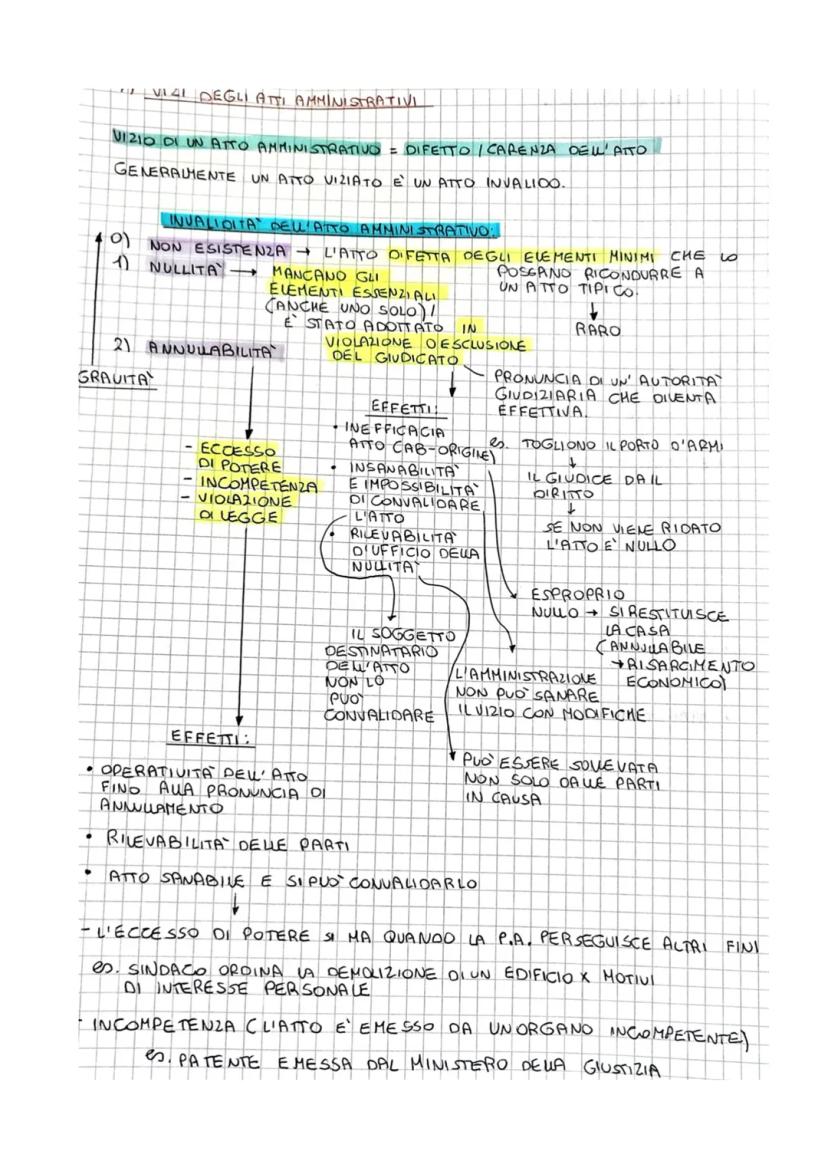 1) VIZI DEGLI ATTI AMMINISTRATIVI
VIZIO DI UN ATTO AMMINISTRATIVO = DIFETTO / CARENZA DELL'ATTO
GENERALMENTE UN ATTO VIZIATO E' UN ATTO INVALIDO.
INVALIDITA' DELL'ATTO AMMINISTRATIVO:
0) NON ESISTENZA → L'ATTO DIFETTA DEGLI ELEMENTI MINIMI CHE LO
POSSANO RICONDURRE A
UN ATTO TIPICO.
↓
RARO
1) NULLITA' → MANCANO GLI
ELEMENTI ESSENZIALI
(ANCHE UNO SOLO) /
E' STATO ADOTTATO IN
VIOLAZIONE O ESCLUSIONE
DEL GIUDICATO
2) ANNULLABILITA'
GRAVITA'
PRONUNCIA DI UN' AUTORITA'
GIUDIZIARIA CHE DIVENTA
EFFETTIVA.
es. TOGLIONO IL PORTO D'ARMI
↓
IL GIUDICE DA IL
DIRITTO
↓
SE NON VIENE RIDATO
L'ATTO E' NULLO
EFFETTI:
• INEFFICACIA
ATTO (AB-ORIGINE)
• INSANABILITA'
E IMPOSSIBILITA'
DI CONVALIDARE
L'ATTO
• RILEVABILITA'
D'UFFICIO DELLA
NULLITA'
- ECCESSO
DI POTERE
- INCOMPETENZA
- VIOLAZIONE
DI LEGGE
ESPROPRIO
NULLO → SI RESTITUISCE
LA CASA
(ANNULLABILE
→ RISARCIMENTO
ECONOMICO)
IL SOGGETTO
DESTINATARIO
DELL'ATTO
NON LO
PUO'
CONVALIDARE
L'AMMINISTRAZIONE
NON PUO' SANARE
IL VIZIO CON MODIFICHE
PUO' ESSERE SOLLEVATA
NON SOLO DALLE PARTI
IN CAUSA
EFFETTI:
• OPERATIVITA' DELL'ATTO
FINO ALLA PRONUNCIA DI
ANNULLAMENTO
• RILEVABILITA' DELLE PARTI
• ATTO SANABILE E SI PUO' CONVALIDARLO
↓
- L'ECCESSO DI POTERE SI HA QUANDO LA P.A. PERSEGUISCE ALTRI FINI
es. SINDACO ORDINA LA DEMOLIZIONE DI UN EDIFICIO X MOTIVI
DI INTERESSE PERSONALE
- INCOMPETENZA (L'ATTO E' EMESSO DA UN ORGANO INCOMPETENTE)
es. PATENTE EMESSA DAL MINISTERO DELLA GIUSTIZIA